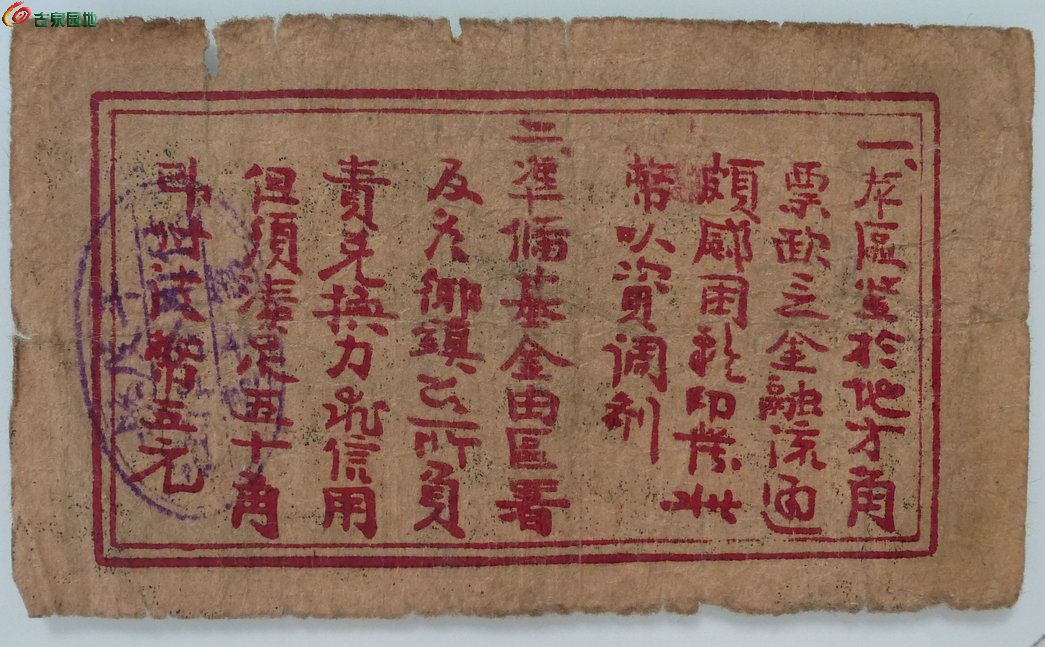 一、本區鉴於地方角
票缺乏金融流通
頗感困难印發此
幣以資调剂
二、準備基金由區署
及各鄉鎮公所負
責兌換力求信用
但須湊足五十角
斗挩法幣五元
古泉园地